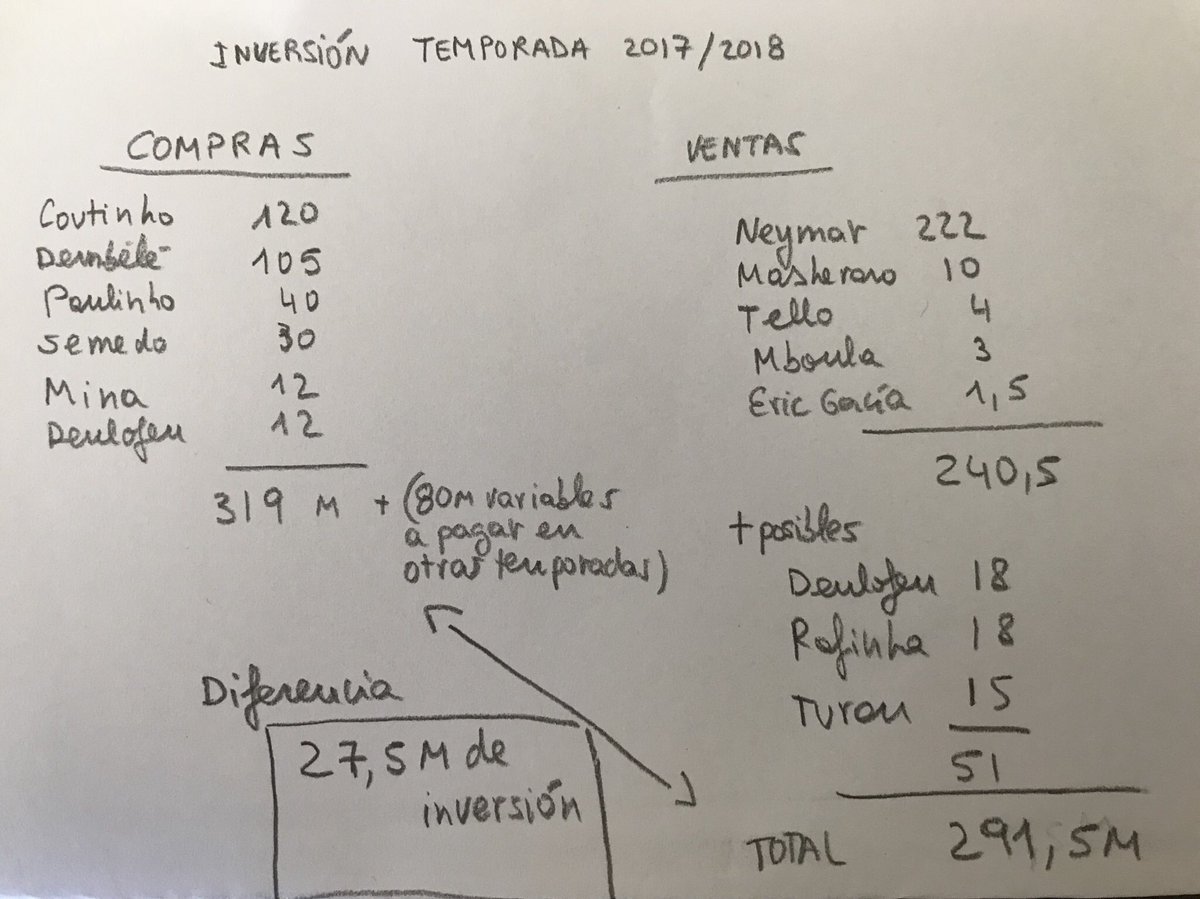 INVERSIÓN TEMPORADA 2017/2018
COMPRAS
Coutinho 120
Dembélé 105
Paulinho 40
Semedo 30
Mina 12
Deulofeu 12
319 M + (80M variables
a pagar en
otras temporadas)
Diferencia
27,5M de
inversión
VENTAS
Neymar 222
Masherano 10
Tello 4
Mboula 3
Eric García 1,5
240,5
+ posibles
Deulofeu 18
Rafinha 18
Turan 15
51
TOTAL 291,5M